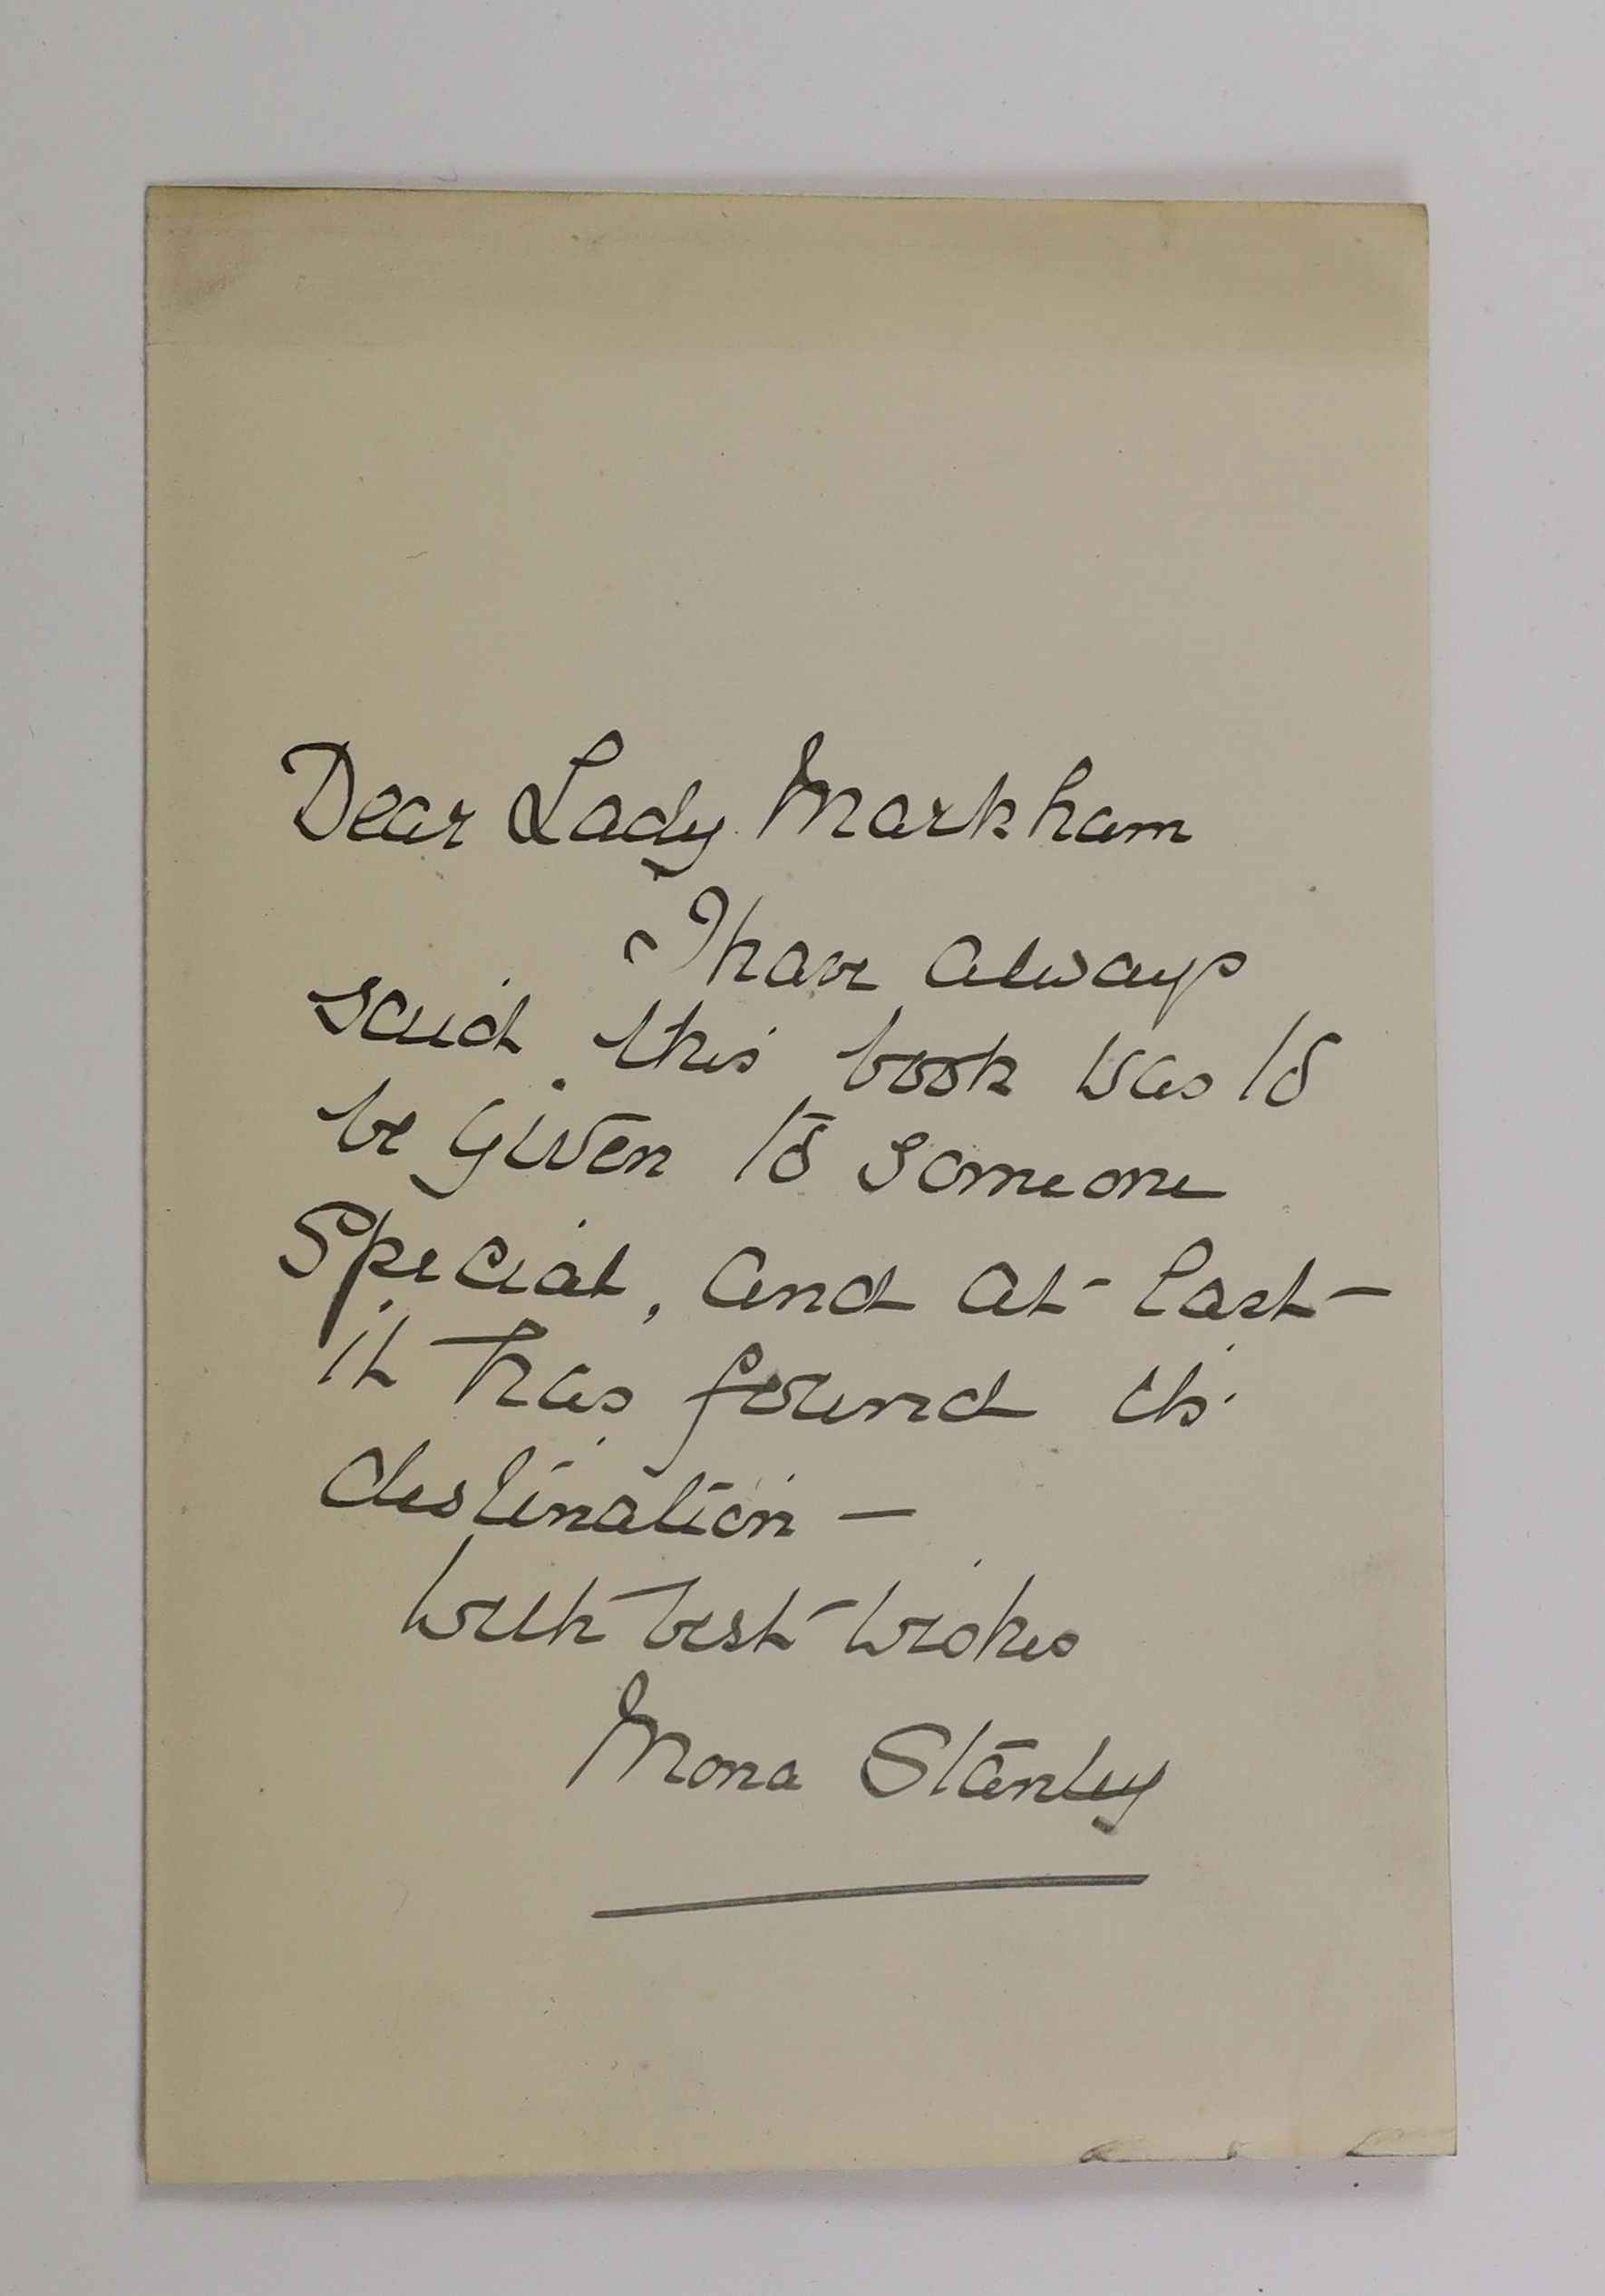 Dear Lady Markham
I have always
said this book was to
be given to someone
Special, and at last
it has found its
destination —
With best wishes
Mona Stanley